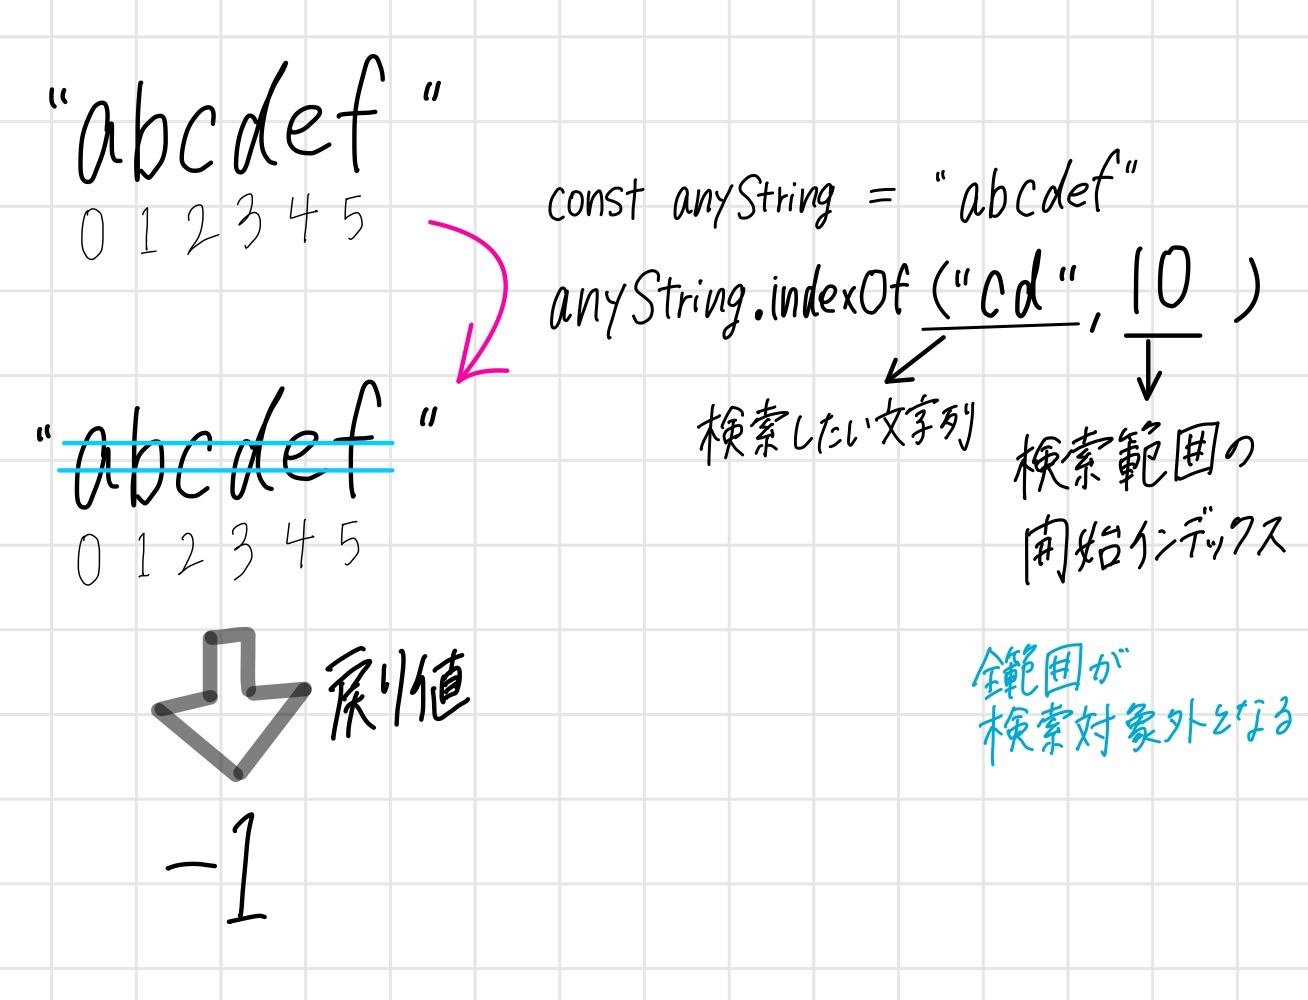 "abcdef"
0 1 2 3 4 5
const anyString = "abcdef"
anyString.indexOf("cd", 10)
検索したい文字列
検索範囲の
開始インデックス
"abcdef"
0 1 2 3 4 5
戻り値
全範囲が
検索対象外となる
-1